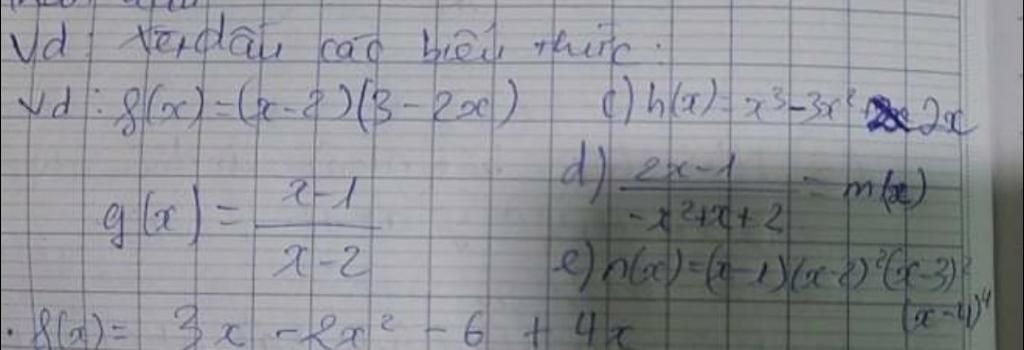 Vd: Xét dấu các biểu thức:
Vd: f(x) = (x-2)(3-2x) c) h(x) = x³-3x²+2x
g(x) = x-1 / x-2
d) 2x-1 / -x²+x+2 = m(x)
e) n(x) = (x-1)(x-2)²(x-3)³
(x-4)⁴
f(x) = 3x - 2x² - 6 + 4x